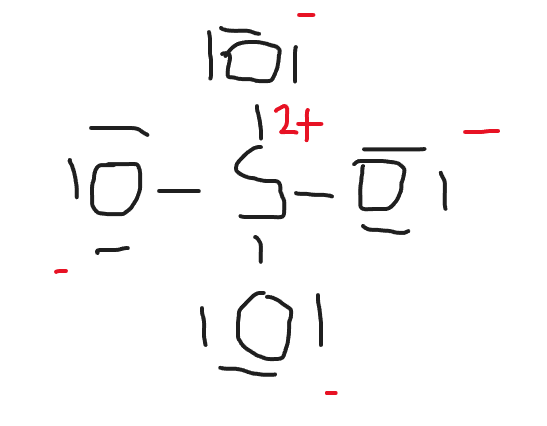 O −
2+
O S O −
−
O
−